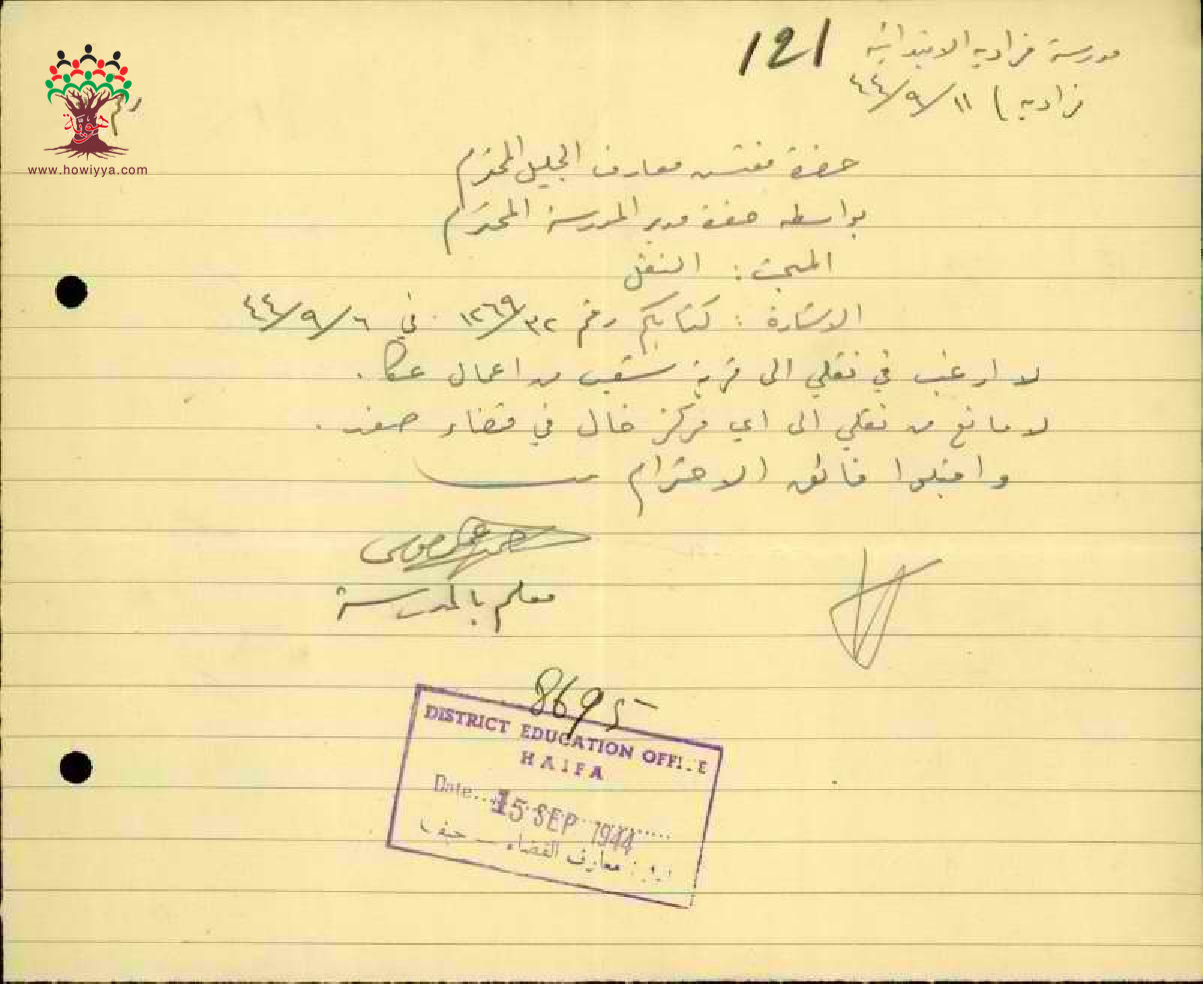 مدرسة فراديه الابتدائيه
121
فراديه ) ١١/٩/٤٤
هوية
www.howiyya.com
حضرة مفتش معارف الجليل المحترم
بواسطه حضرة مدير المدرسة المحترم
المبحث : النقل
الاشارة : كتابكم رقم ١٢٦٩/٣٢ في ٤٤/٩/٦
لا ارغب في نقلي الى قرية شعب من اعمال عكا .
لا مانع من نقلي الى اي مركز خال في قضاء صفد .
واقبلوا فائق الاحترام
موسى
معلم بالمدرسة
8695
DISTRICT EDUCATION OFFICE
HAIFA
Date... 15 SEP 1944
معارف القضاء – حيفا